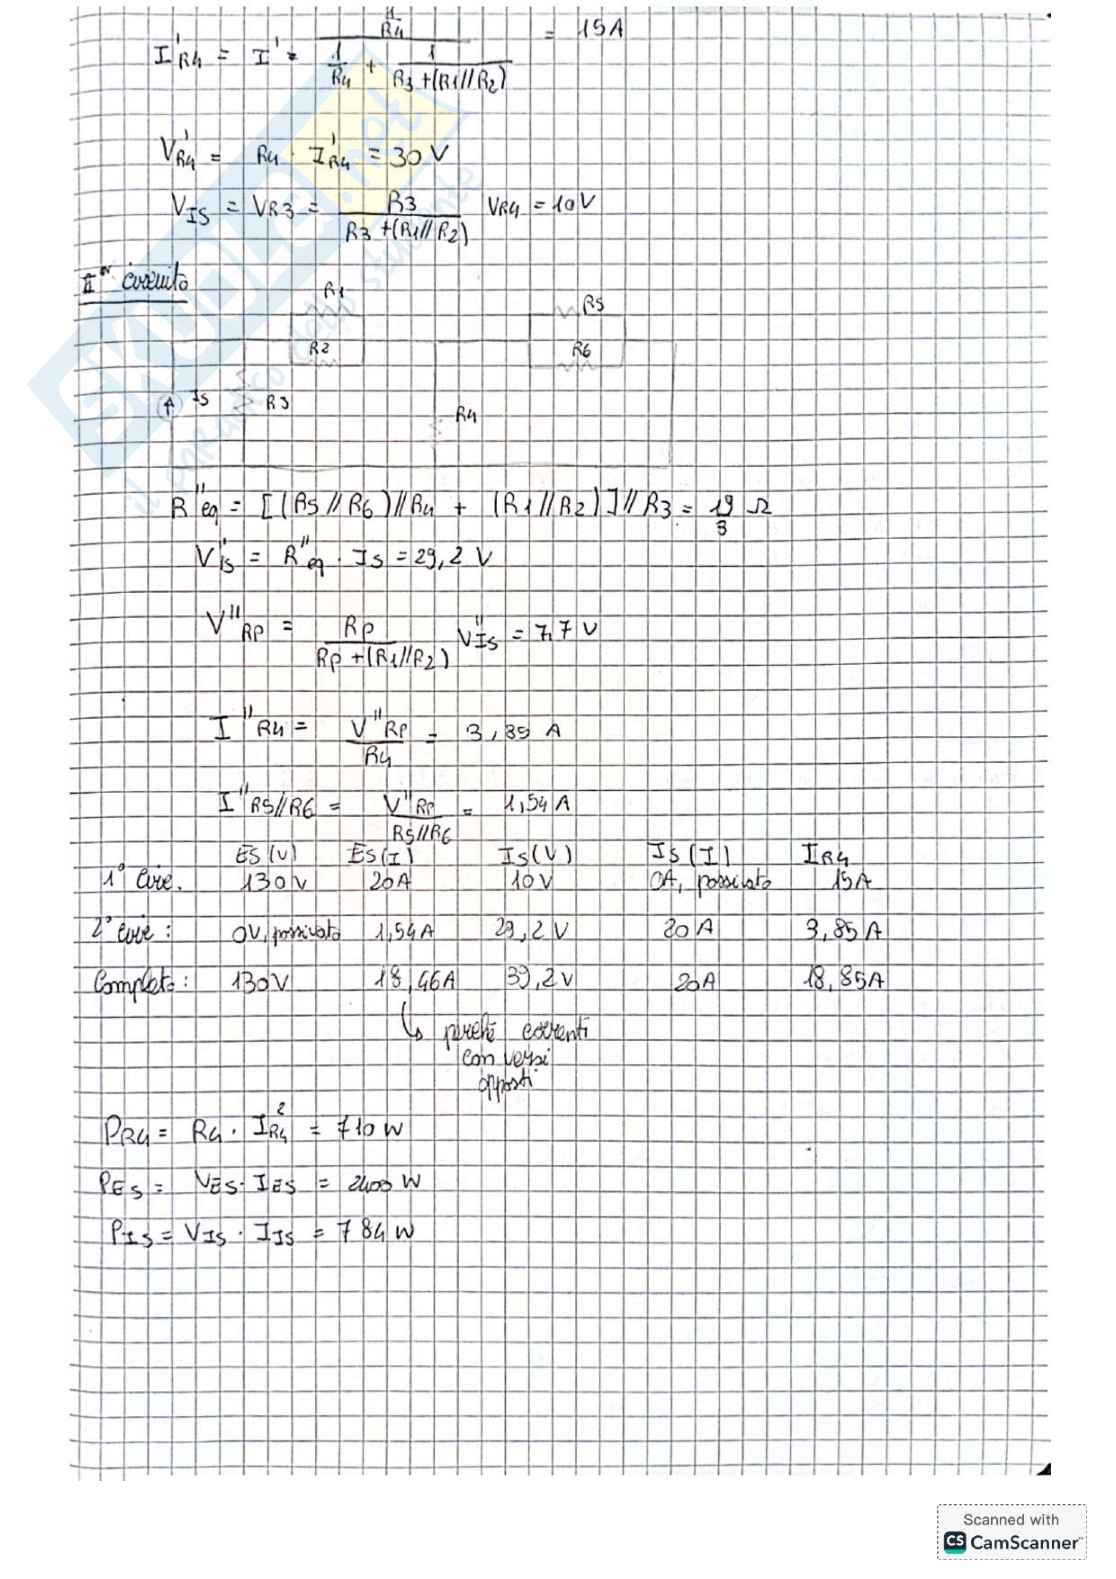 I'R4 = I' = (1/R4) / (1/R4 + 1/(R3+(R1//R2))) = 15A
V'R4 = R4 · I'R4 = 30 V
VIS = VR3 = R3 / (R3 +(R1//R2)) VR4 = 10V
II° circuito
R1
R5
R2
R6
A Is R3
R4
R''eq = [(R5//R6)//R4 + (R1//R2)]//R3 = 19/3 Ω
V'is = R''eq · Is = 29,2 V
V''RP = RP / (RP +(R1//R2)) V''IS = 7,7 V
I''R4 = V''RP / R4 = 3,85 A
I''R5//R6 = V''RP / R5//R6 = 1,54 A
ES (V) ES (I) IS (V) IS (I) IR4
1° Circ. 130V 20A 10V 0A, passivato 15A
2° circ : 0V, passivato 1,54A 29,2 V 20 A 3,85 A
Completo: 130V 18,46A 39,2 V 20A 18,85A
↳ perché correnti
con versi
opposti
PR4 = R4 · IR4² = 710 W
PES = VES · IES = 2400 W
PIS = VIS · IIS = 784 W
SKUOLA.net
il paradiso dello studente
Scanned with
CS CamScanner